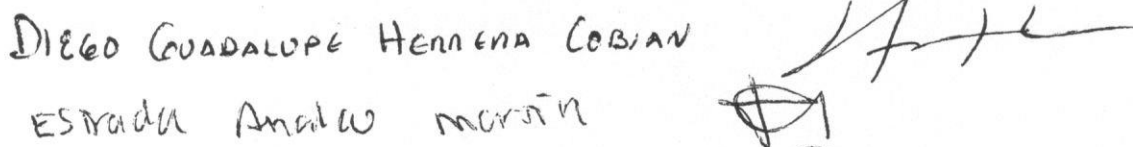 DIEGO GUADALUPE HERRERA COBIAN
Estrada Analco martin